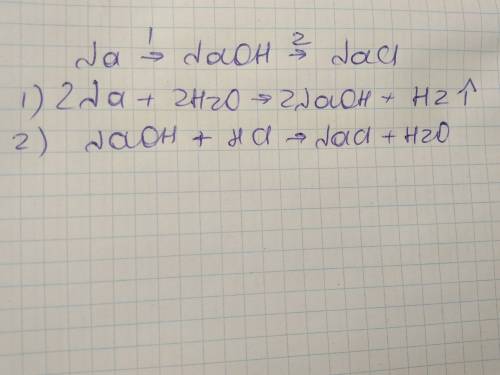 Na →¹ NaOH →² NaCl
1) 2Na + 2H2O → 2NaOH + H2↑
2) NaOH + HCl → NaCl + H2O